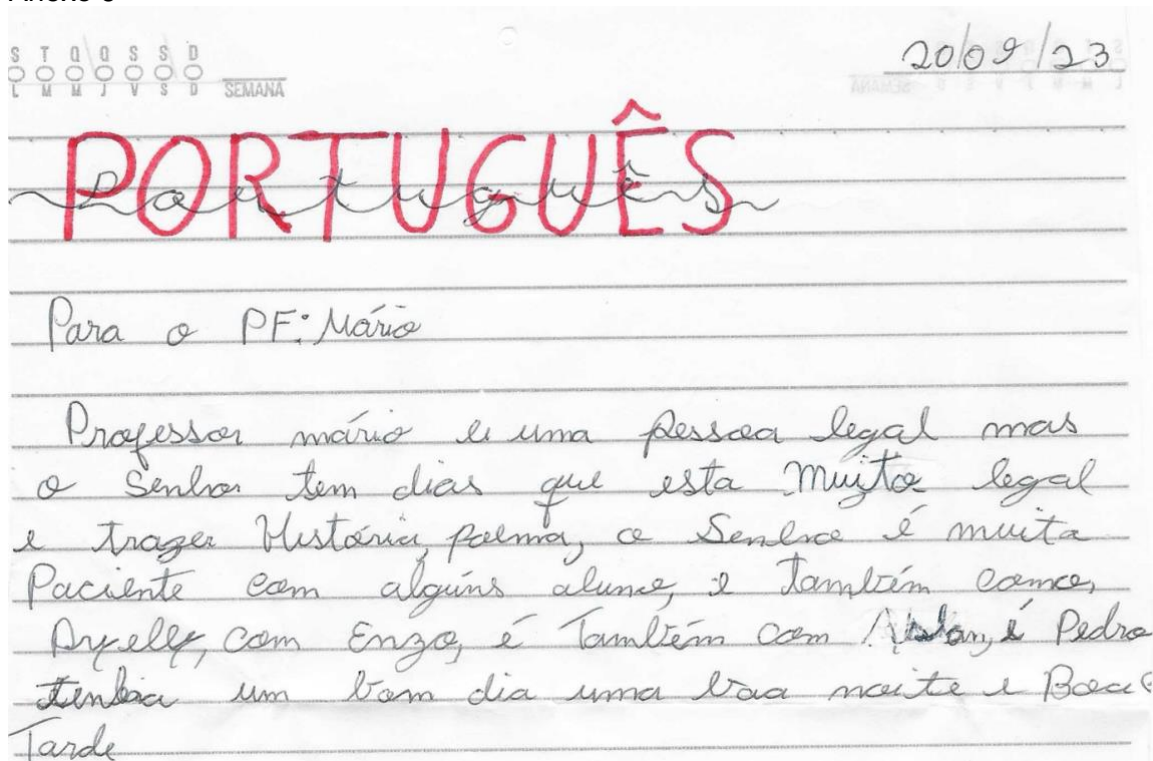 S T Q Q S S D
L M M J V S D SEMANA
20/09/23
PORTUGUÊS
Português
Para o PF: Mário
Professor mário e uma pessoa legal mas
o Senhor tem dias que esta Muito legal
e trazer História, poema, o Senhor é muita
Paciente com alguns aluno, e também
com Enzo, é Também com é Pedro
tenhia um bom dia uma boa noite e Boa
Tarde